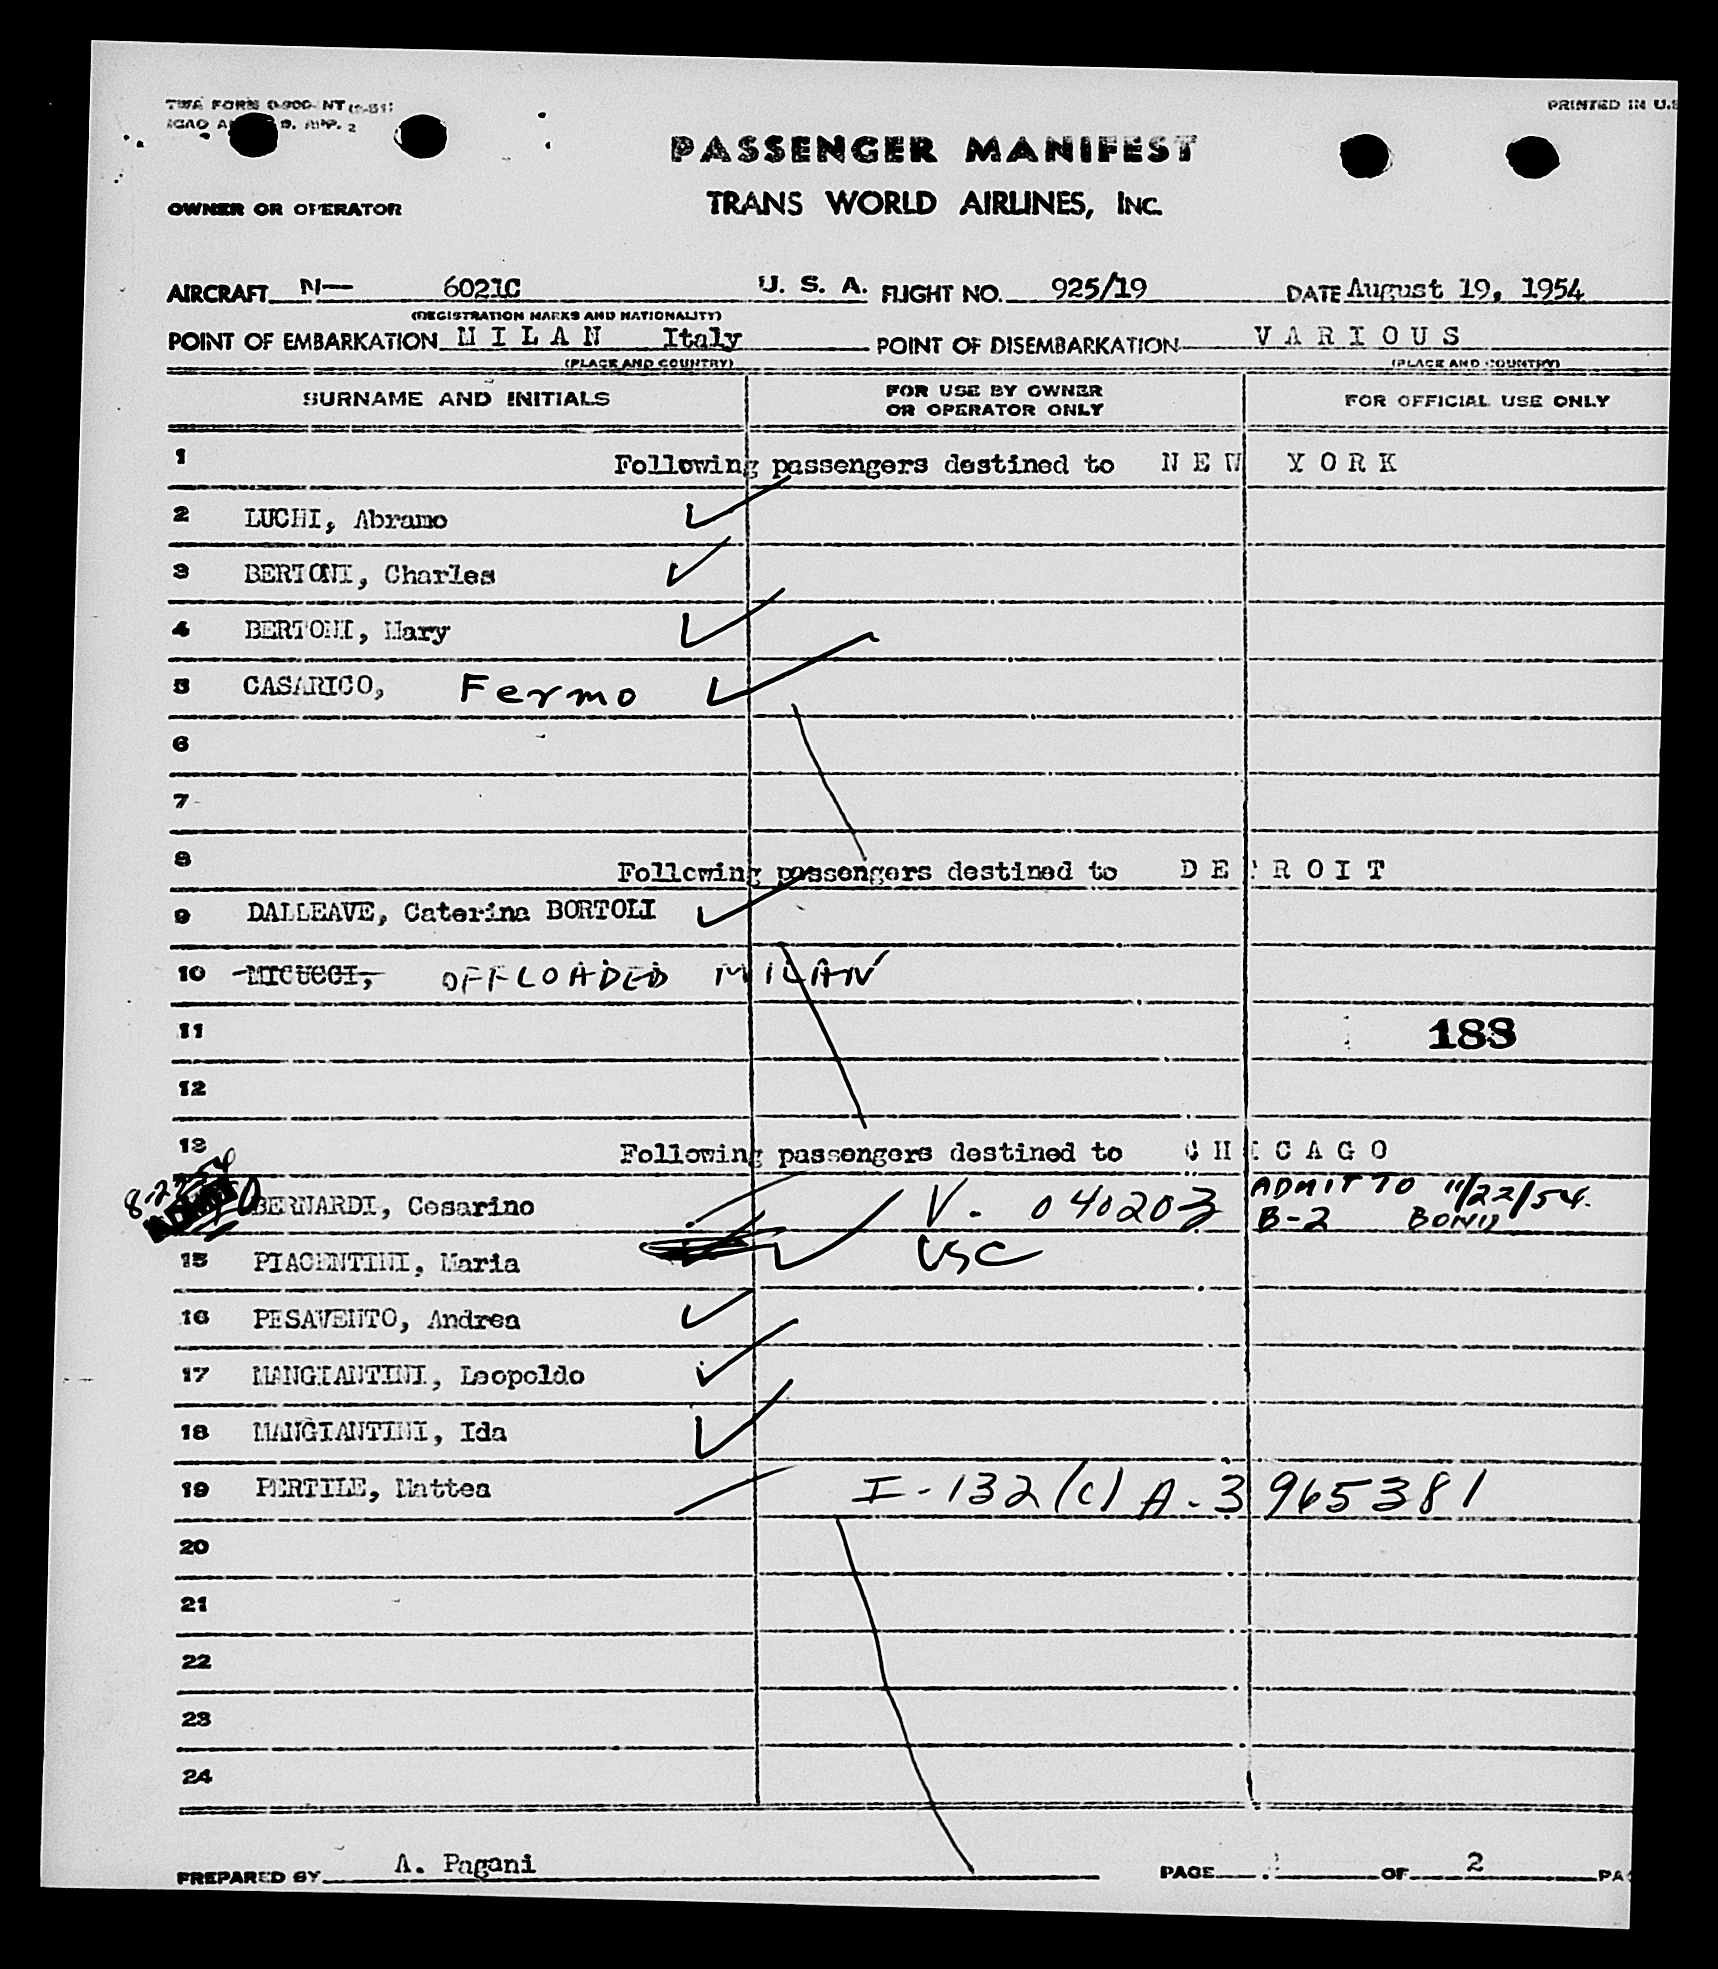 TWA FORM 0-900-NT
PRINTED IN U.S
ICAO
9. APP. 2
PASSENGER MANIFEST
OWNER OR OPERATOR
TRANS WORLD AIRLINES, INC.
AIRCRAFT N— 6021C U. S. A. FLIGHT NO. 925/19 DATE August 19, 1954
(REGISTRATION MARKS AND NATIONALITY)
POINT OF EMBARKATION M I L A N Italy POINT OF DISEMBARKATION V A R I O U S
(PLACE AND COUNTRY) (PLACE AND COUNTRY)
SURNAME AND INITIALS FOR USE BY OWNER OR OPERATOR ONLY FOR OFFICIAL USE ONLY
1 Following passengers destined to N E W Y O R K
2 LUCHI, Abramo
3 BERTONI, Charles
4 BERTONI, Mary
5 CASARICO, Fermo
6
7
8 Following passengers destined to D E T R O I T
9 DALLEAVE, Caterina BORTOLI
10 MICUCCI, OFFLOADED MILAN
11 183
12
13 Following passengers destined to C H I C A G O
BERNARDI, Cesarino V. 040203 ADMIT TO 11/22/54.
B-2 BOND
15 PIACENTINI, Maria USC
16 PESAVENTO, Andrea
17 MANGIANTINI, Leopoldo
18 MANGIANTINI, Ida
19 PERTILE, Mattea I-132 (c) A-3 965381
20
21
22
23
24
PREPARED BY A. Pagani PAGE OF 2